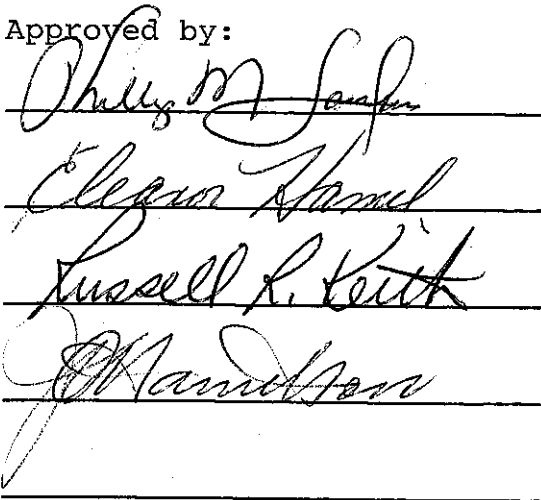 Approved by:
Phillip M
Eleanor Hamel
Russell R. Keith
J Hamilton